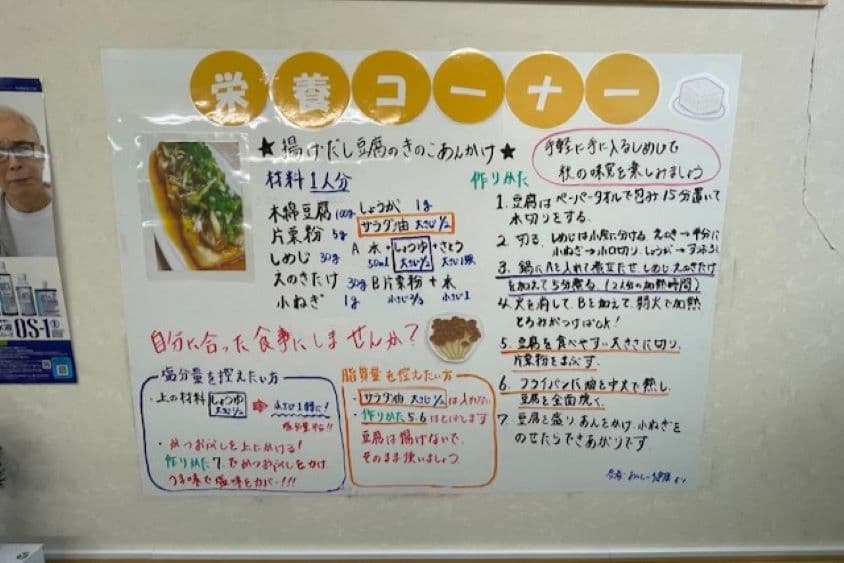 栄養コーナー
★揚げだし豆腐のきのこあんかけ★
手軽に手に入るしめじで
秋の味覚を楽しみましょう
材料1人分
木綿豆腐 100g しょうが 1g
片栗粉 5g サラダ油 大さじ1/2
しめじ 30g A 水・しょうゆ・さとう
50ml 大さじ1/2
えのきたけ 30g B片栗粉+水
小ねぎ 1g 小さじ1
作りかた
1. 豆腐はペーパータオルで包み15分置いて
水切りをする。
2. 切る。しめじは小房に分ける、えのき→半分に
小ねぎ→小口切り、しょうが→すりおろし
3. 鍋にAを入れて煮立たせ、しめじ、えのきたけ
を加えて5分煮る。(2人分の加熱時間)
4. 火を消して、Bを加えて、弱火で加熱
とろみがつけばOK!
5. 豆腐を食べやすい大きさに切り、
片栗粉をまぶす。
6. フライパンに油を中火で熱し、
豆腐を全面焼く。
7. 豆腐を盛り、あんをかけ、小ねぎを
のせたらできあがりです。
自分に合った食事にしませんか?
塩分量を控えたい方
・上の材料 しょうゆ 大さじ1/2 ⇒ 小さじ1杯に!
塩分量半分!!
・かつおぶしを上にかける!
作りかた7.でかつおぶしをかけ
うま味で塩味をカバー!!!
脂質量を控えたい方
・サラダ油 大さじ1/2 は入れない
・作りかた5.6はとばします
豆腐は揚げないで、
そのまま使いましょう
参考:おいしい健康より
OS-1